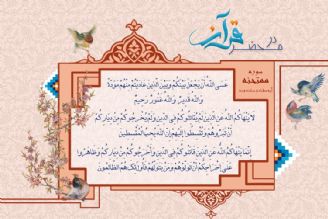 در محضر قرآن
سوره
ممتحنه
عَسَى اللَّهُ أَن يَجْعَلَ بَيْنَكُمْ وَبَيْنَ الَّذِينَ عَادَيْتُم مِّنْهُم مَّوَدَّةً
وَاللَّهُ قَدِيرٌ وَاللَّهُ غَفُورٌ رَّحِيمٌ
لَا يَنْهَاكُمُ اللَّهُ عَنِ الَّذِينَ لَمْ يُقَاتِلُوكُمْ فِي الدِّينِ وَلَمْ يُخْرِجُوكُم مِّن دِيَارِكُمْ
أَن تَبَرُّوهُمْ وَتُقْسِطُوا إِلَيْهِمْ إِنَّ اللَّهَ يُحِبُّ الْمُقْسِطِينَ
إِنَّمَا يَنْهَاكُمُ اللَّهُ عَنِ الَّذِينَ قَاتَلُوكُمْ فِي الدِّينِ وَأَخْرَجُوكُم مِّن دِيَارِكُمْ وَظَاهَرُوا
عَلَى إِخْرَاجِكُمْ أَن تَوَلَّوْهُمْ وَمَن يَتَوَلَّهُمْ فَأُولَئِكَ هُمُ الظَّالِمُونَ